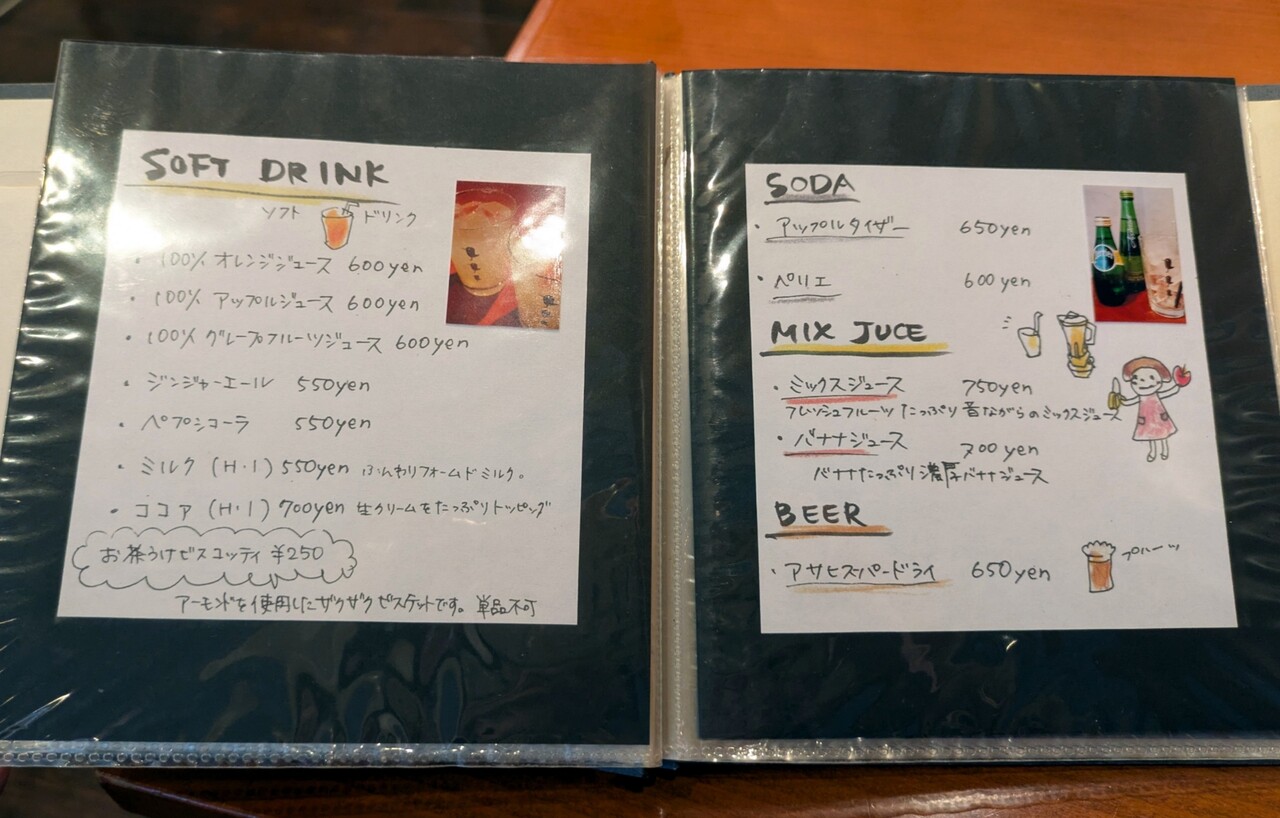 SOFT DRINK
ソフト ドリンク
・100% オレンジジュース 600yen
・100% アップルジュース 600yen
・100% グレープフルーツジュース 600yen
・ジンジャーエール 550yen
・ペプシコーラ 550yen
・ミルク (H・I) 550yen ふんわりフォームドミルク。
・ココア (H・I) 700yen 生クリームをたっぷりトッピング
お茶うけビスコッティ ¥250
アーモンドを使用したザクザクビスケットです。単品不可
SODA
・アップルタイザー 650yen
・ペリエ 600yen
MIX JUCE
・ミックスジュース 750yen
フレッシュフルーツたっぷり 昔ながらのミックスジュース
・バナナジュース 700yen
バナナたっぷり濃厚バナナジュース
BEER
・アサヒスーパードライ 650yen